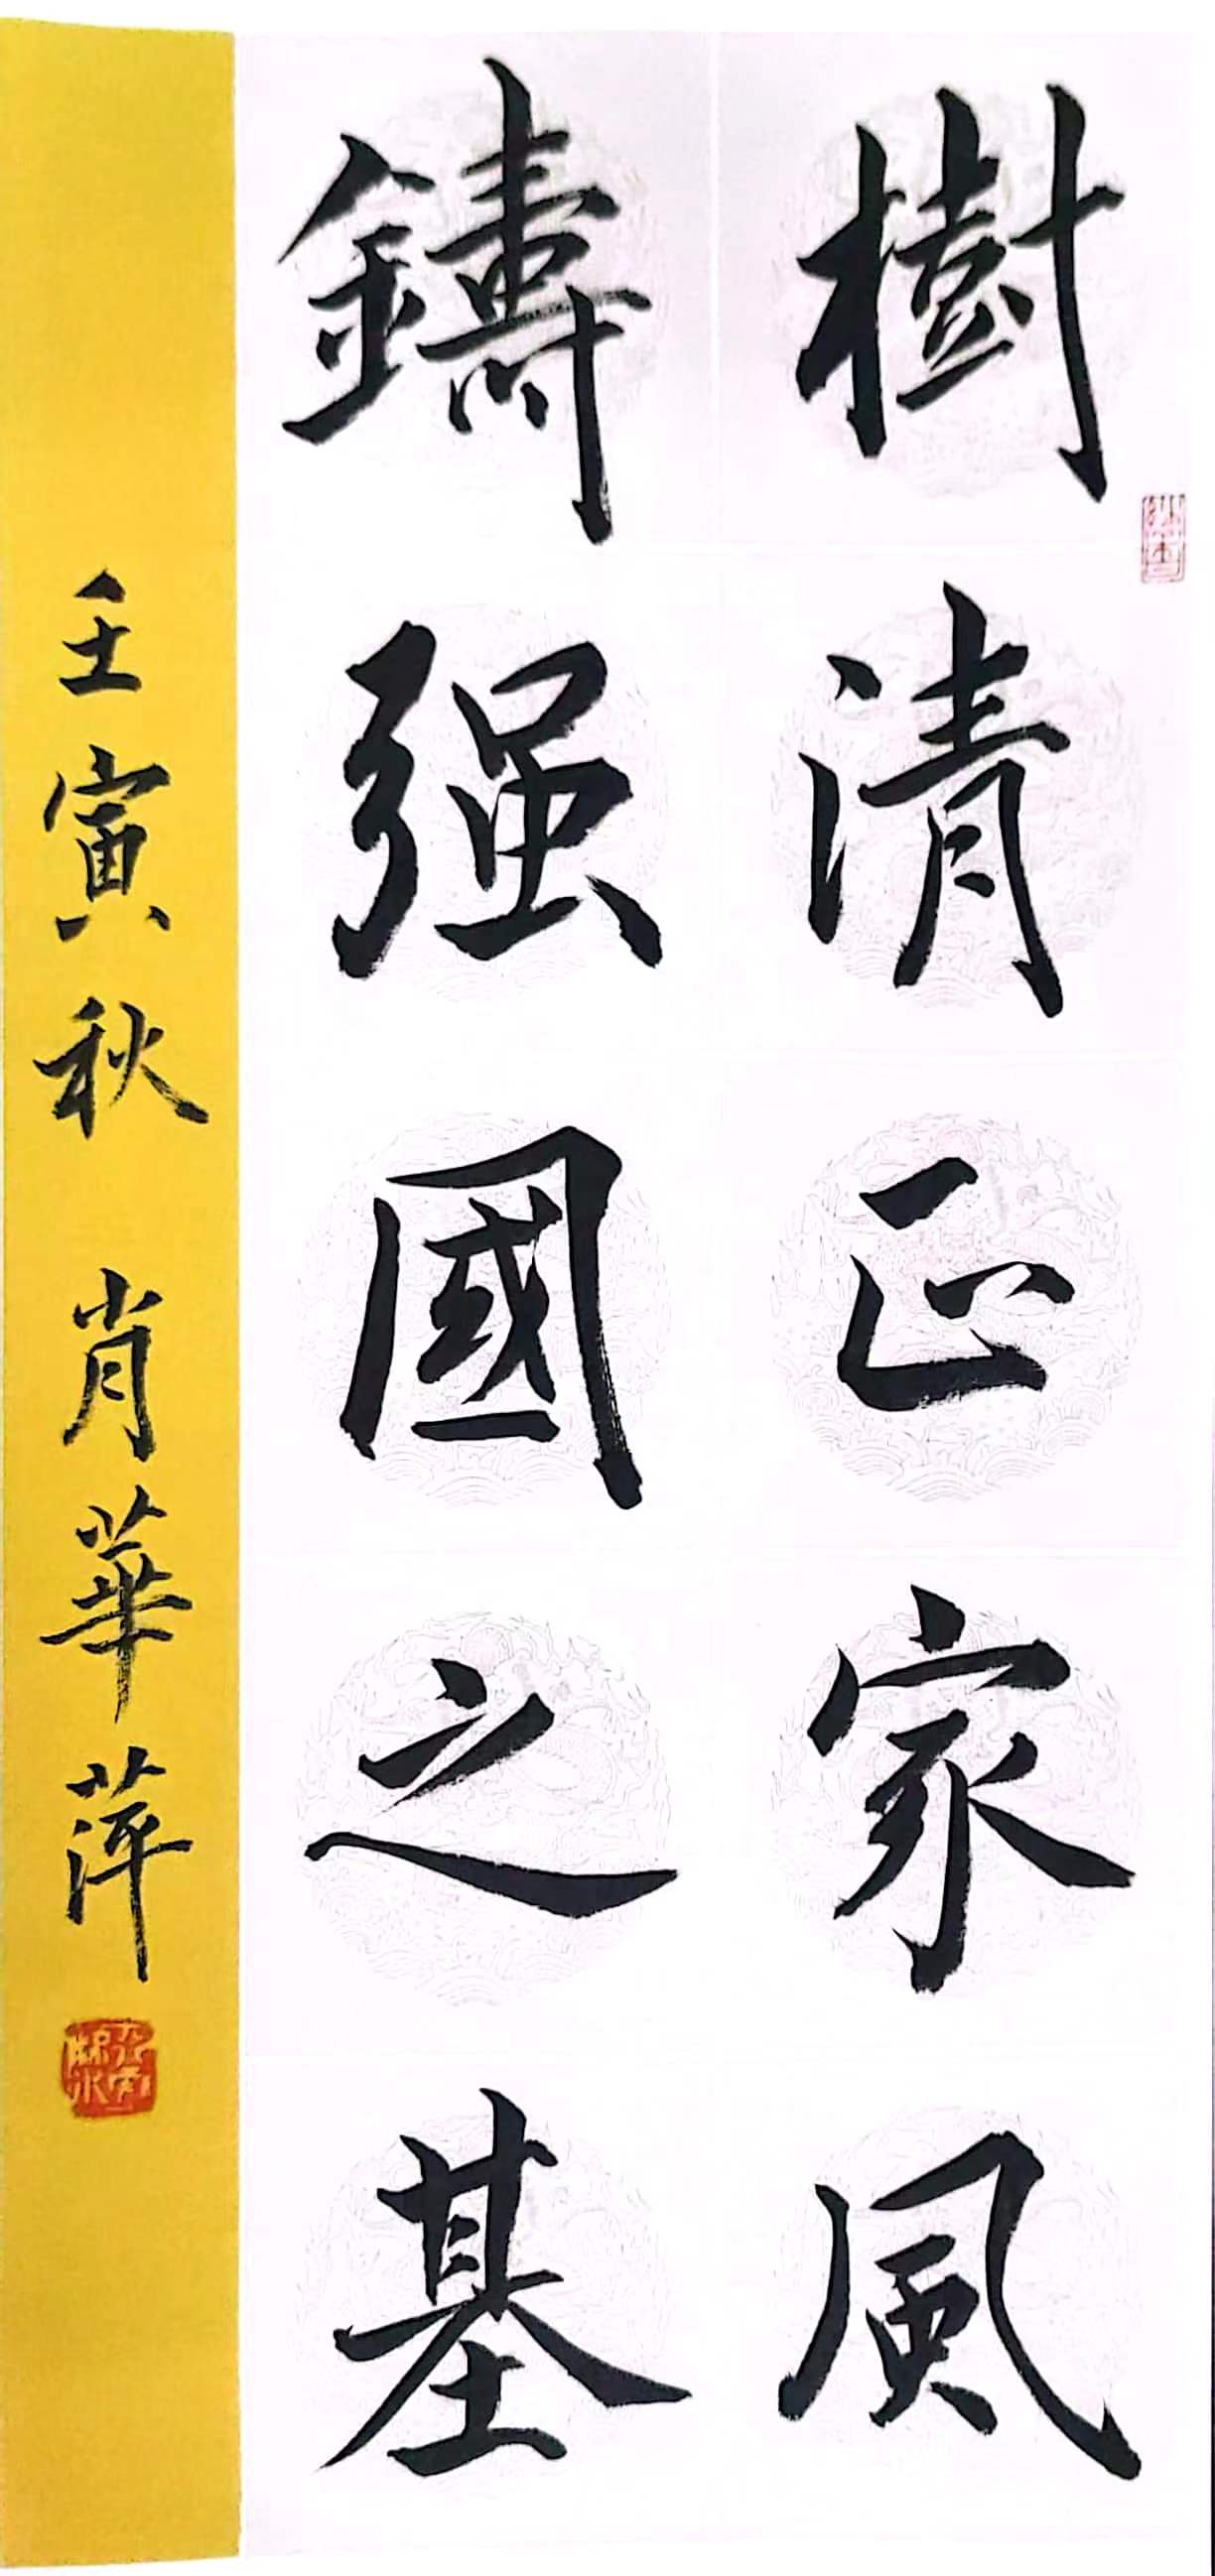 樹清正家風
鑄强國之基
壬寅秋 肖華萍